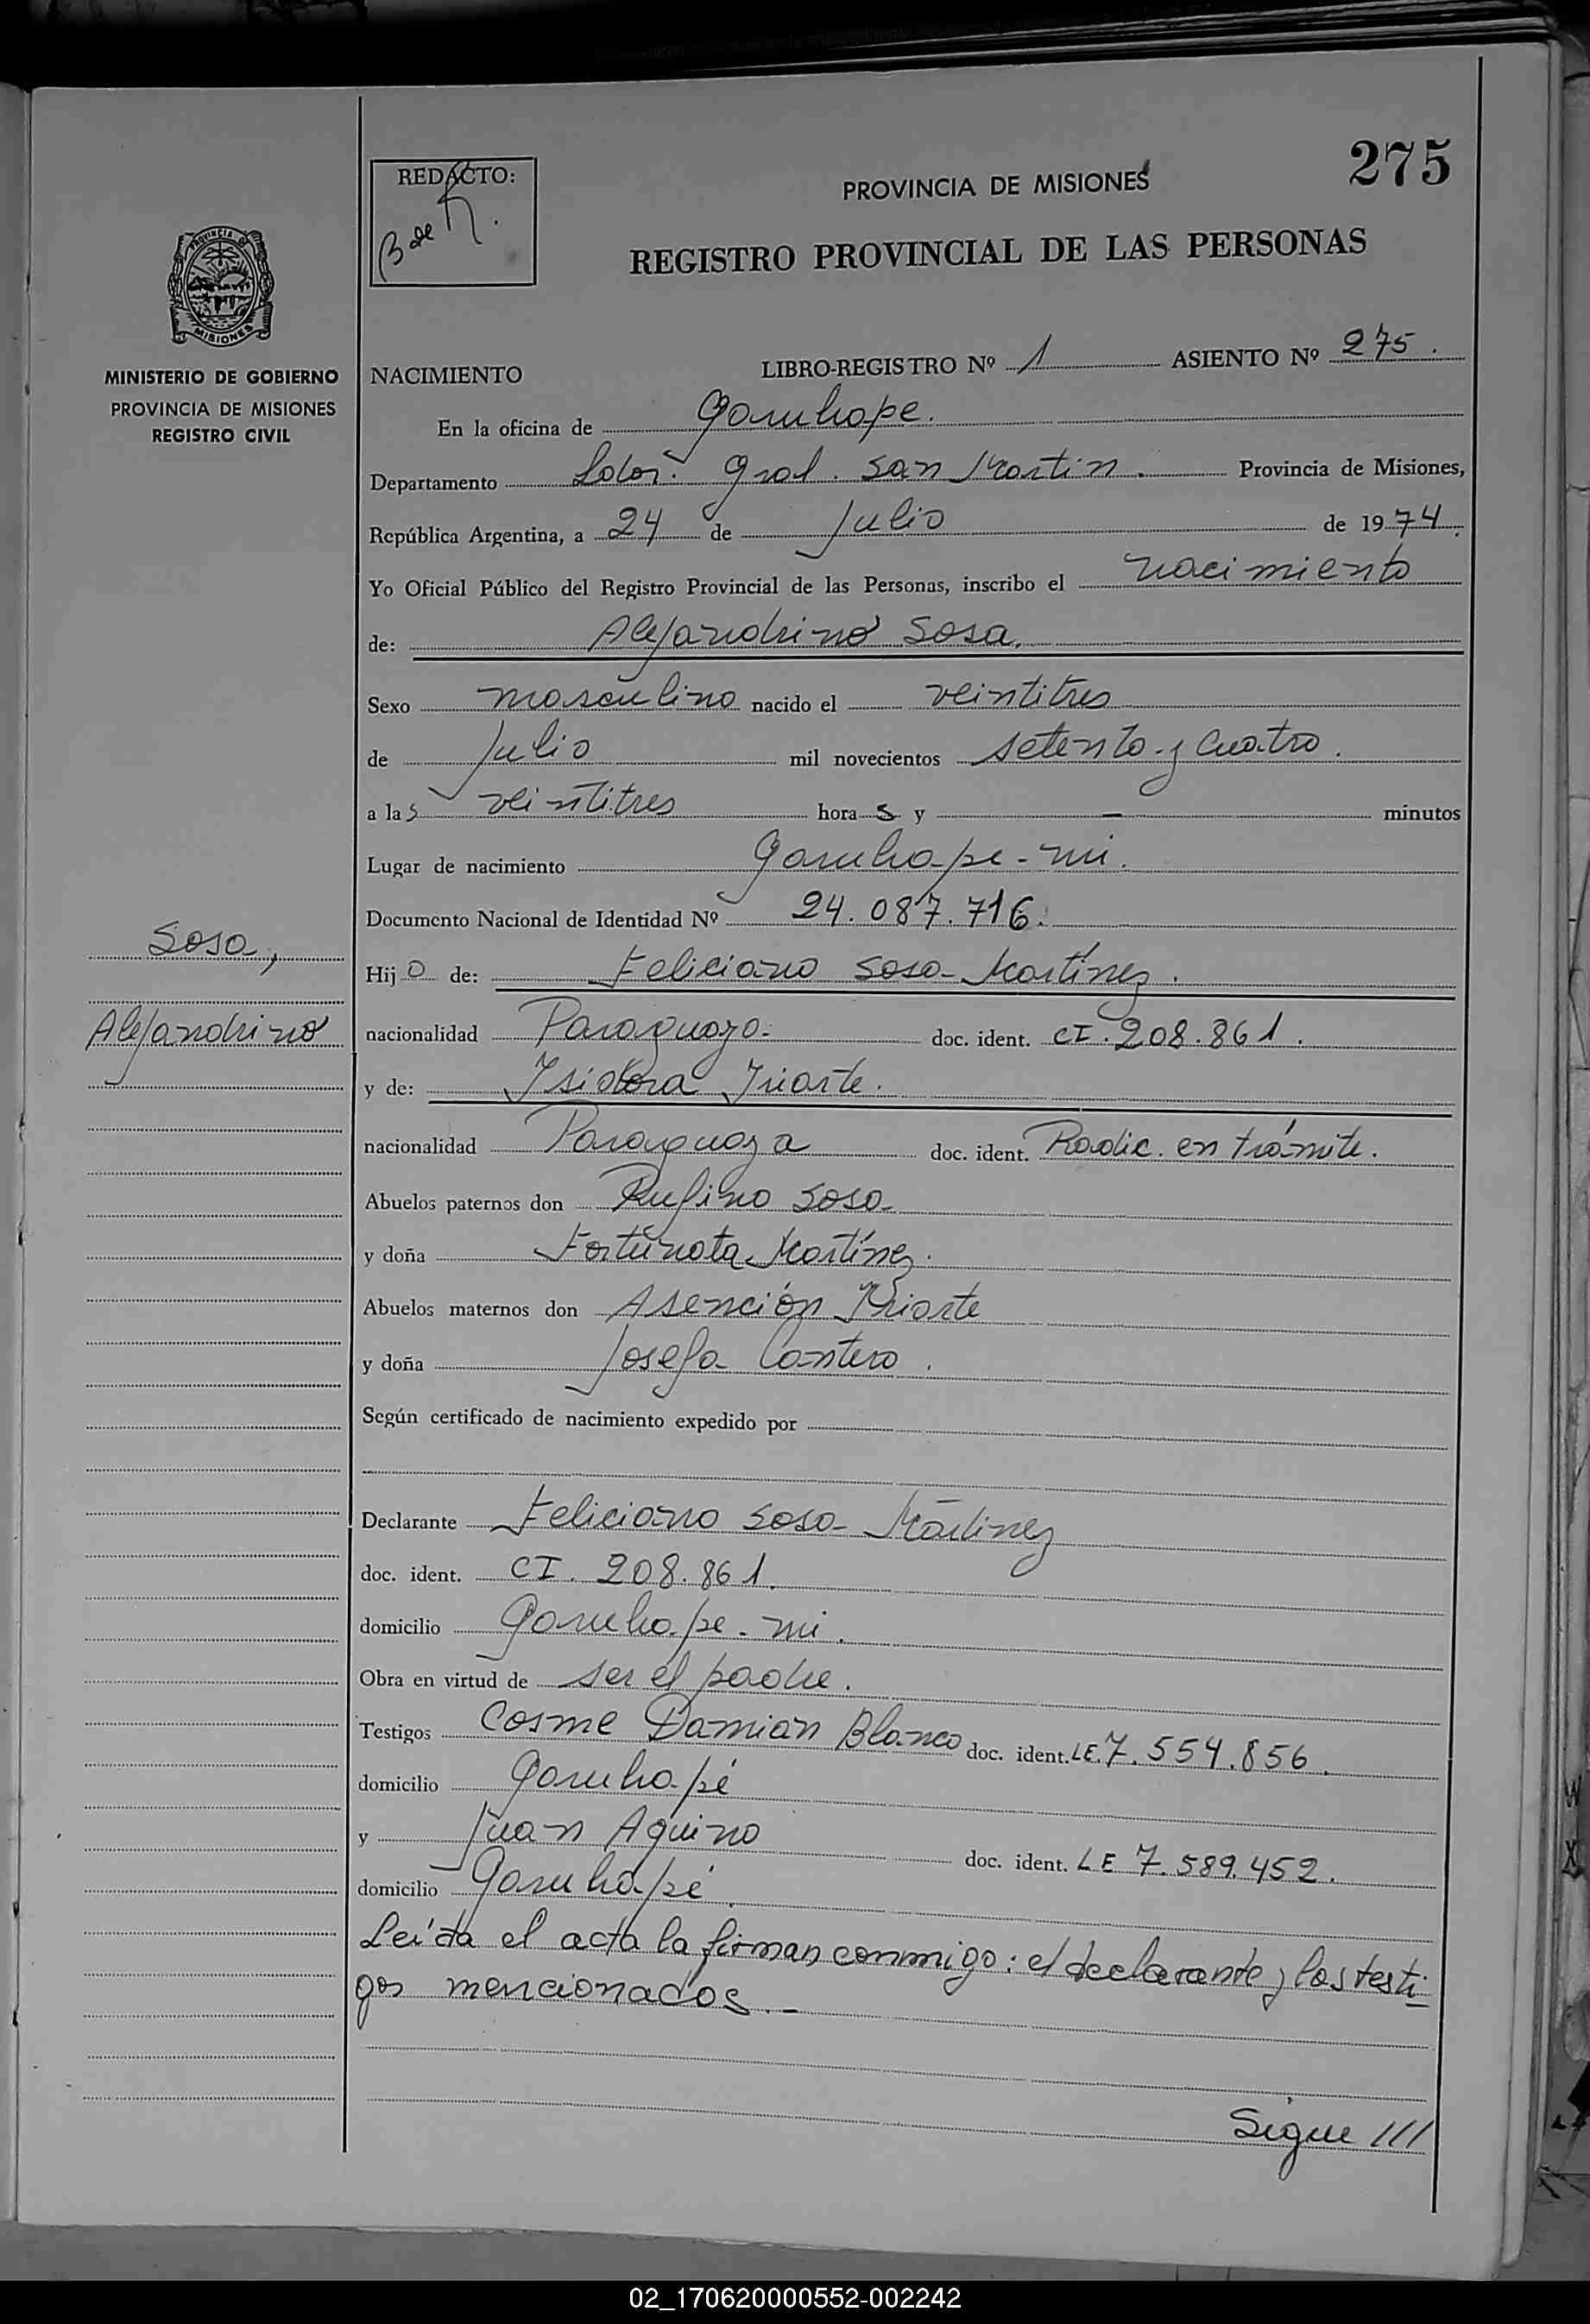 275
REDACTO:
B de R.
PROVINCIA DE MISIONES
REGISTRO PROVINCIAL DE LAS PERSONAS
PROVINCIA DE MISIONES
MINISTERIO DE GOBIERNO
PROVINCIA DE MISIONES
REGISTRO CIVIL
NACIMIENTO LIBRO-REGISTRO Nº 1 ASIENTO Nº 275.
En la oficina de Garuhape.
Departamento Ldor. Gral. San Martin. Provincia de Misiones,
República Argentina, a 24 de Julio de 1974.
Yo Oficial Público del Registro Provincial de las Personas, inscribo el nacimiento
de: Alejandrino Sosa.
Sexo masculino nacido el veintitres
de Julio mil novecientos setenta y cuatro.
a las veintitres horas y — minutos
Lugar de nacimiento Garuhape-mi.
Documento Nacional de Identidad Nº 24.087.716.
Sosa,
Alejandrino
Hijo de: Feliciano Sosa Martínez.
nacionalidad Paraguaya. doc. ident. CI. 208.861.
y de: Isidora Iriarte.
nacionalidad Paraguaya doc. ident. Radic. en trámite.
Abuelos paternos don Rufino Sosa
y doña Fortunata Martínez.
Abuelos maternos don Asención Iriarte
y doña Josefa Cantero.
Según certificado de nacimiento expedido por
Declarante Feliciano Sosa Martinez
doc. ident. CI. 208.861.
domicilio Garuhape-mi.
Obra en virtud de ser el padre.
Testigos Cosme Damián Blanco doc. ident. LE. 7.554.856.
domicilio Garuhapé
y Juan Aquino doc. ident. LE 7.589.452.
domicilio Garuhapé
Leída el acta la firman conmigo: el declarante y los testi-
gos mencionados.-
Sigue ///
02_170620000552-002242